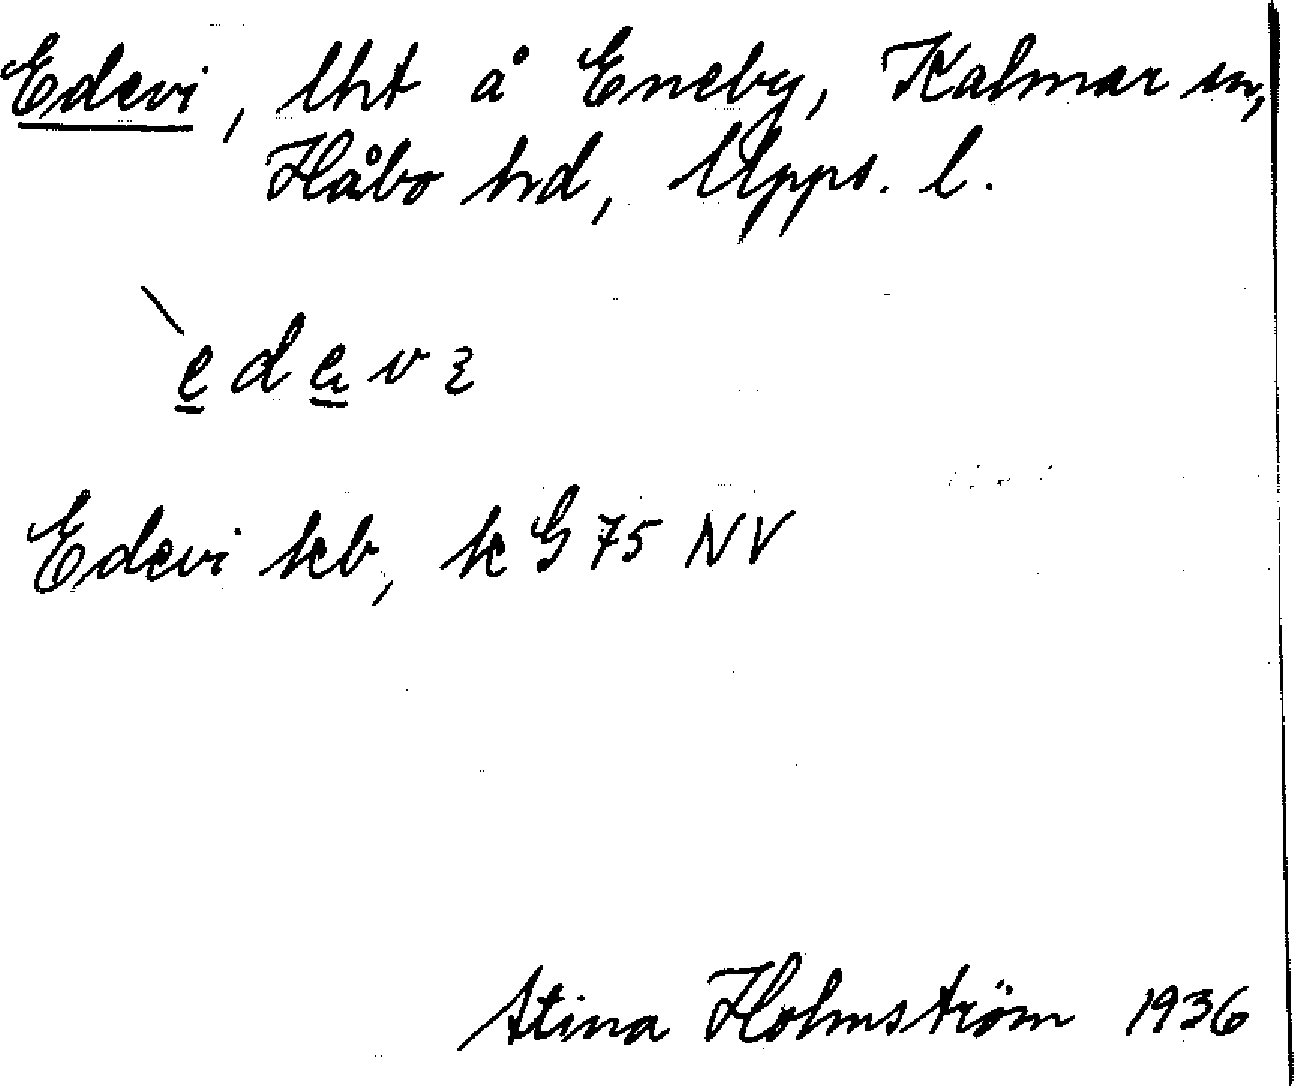 Edevi, lht å Eneby, Kalmar sn,
Håbo hd, Upps. l.
Edevi kb, k G 75 NV
Stina Holmström 1936